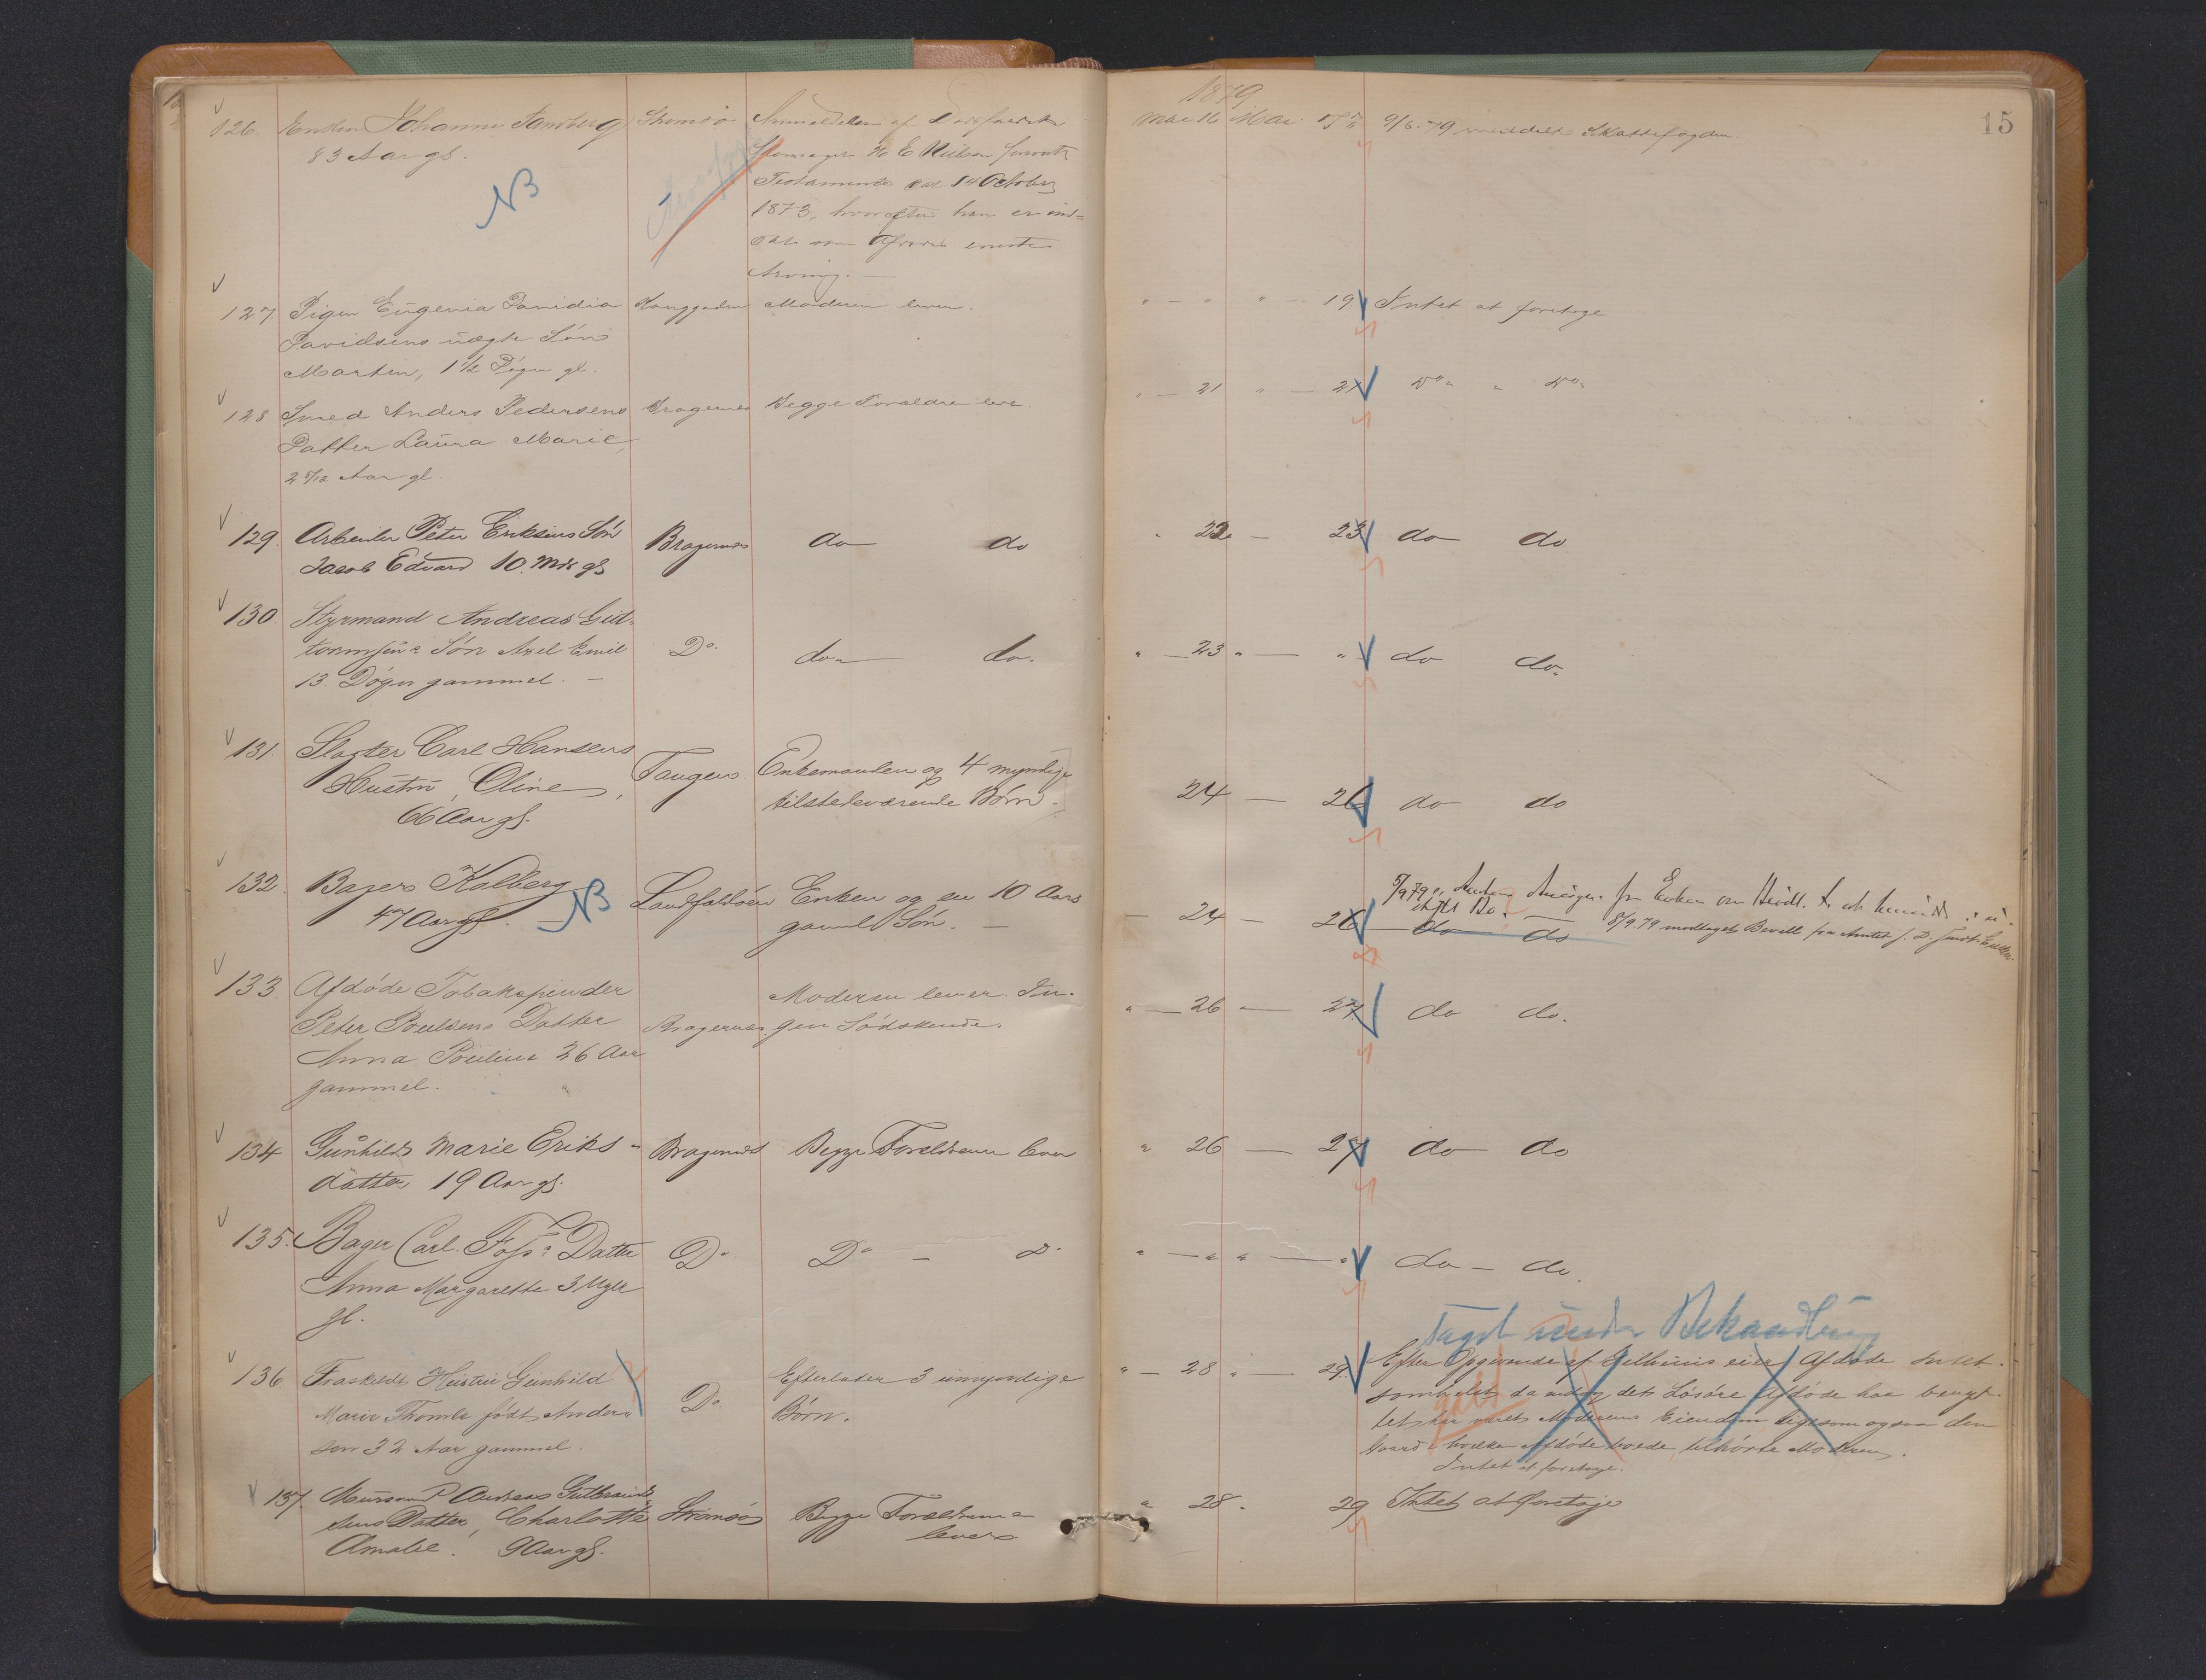 1879
15
126. Enken Johanne Samberg Strømsø Anmeldelse af
83 Aar gl.
NB
Testamente dat 14 October
1873, hvorefter han er ind-
som Afdødes eneste
Arving. —
Mai 16 Mai 17 9/6. 79 meddelt Skattefogden
127. Pigen Eugenia Davidia Konggaden Moderen lever. " — " " — 19. Intet at foretage
Davidsens uægte Søn
Martin, 1½ Døgn gl.
128 Smed Anders Pedersens Bragernes Begge Forældre leve. " — 21 " — 21 Do " Do
Datter Laura Marie,
2 5/12 Aar gl.
129. Arbeider Peter Eriksens Søn Bragernes do do " 22 — 23 do do
Jacob Edvard 10 Mdr gl
130 Styrmand Andreas Gut-
tormsens Søn Axel Emil Do. do do. " — 23 " — " do do
13. Døgn gammel. —
131. Slagter Carl Hansens Tangen. Enkemanden og 4 myndige
Hustru, Oline, tilstedeværende Børn. 24 — 26 do do
66 Aar gl.
132. Bagers Kolberg Landfaldøen Enken og en 10 Aars
47 Aar gl. NB gaml Søn. — — 24 — 26 do do
5/9 79 fra Enken om
8/9 79 modtaget Bevill fra Amtet
133. Afdøde Tobakspinder Moderen lever. In-
Peter Poulsens Datter Bragernes. gen Sødskende. " — 26 " — 27 do do.
Anna Pouline 26 Aar
gammel.
134 Gunhild Marie Eriks- Bragernes Begge Forældrene lever " 26 — 27 do do
datter 19 Aar gl.
135. Bager Carl Foss's Datter Do Do — Do " — " " — " do — do.
Anna Margarethe 3 Uger
gl.
Taget under Behandling
136 Fraskilte Hustru Gunhild Do Efterlader 3 umyndige " — 28 " — 29. Efter Opgivende af eier Afdøde Intet
Marie Thomle født Anders- Børn. somhelst, da det Løsøre Afdøde har benyt-
sen 32 Aar gammel. tet har været Moderens Eiendom ligesom ogsaa den
Gaard i hvilken Afdøde boede, tilhørte Moderen.
Intet at foretage.
137. Andreas Gulbrand- Strømsø Begge Forældrene " 28. 29 Intet at foretage
sens Datter, Charlotte lever
Amalie. 9 Aar gl.